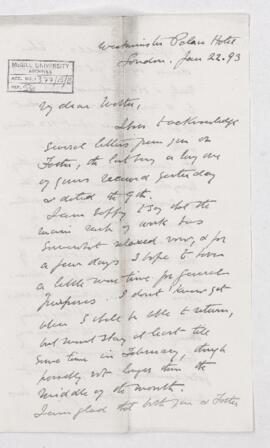 Westminster Palace Hotel
London. Jan 22. 93
McGILL UNIVERSITY
ARCHIVES
ACC. NO.
REF.
My dear
I have to acknowledge
several letters from you &
Foster, the last being a long one
of yours received yesterday
& dated the 9th.
I am happy to say that the
main rush of work has
somewhat relaxed now, & for
a few days I hope to have
a little more time for general
purposes. I don't know yet
when I shall be able to return,
but must stay at least till
some time in February, though
possibly not longer than the
middle of the month.
I am glad that both you & Foster